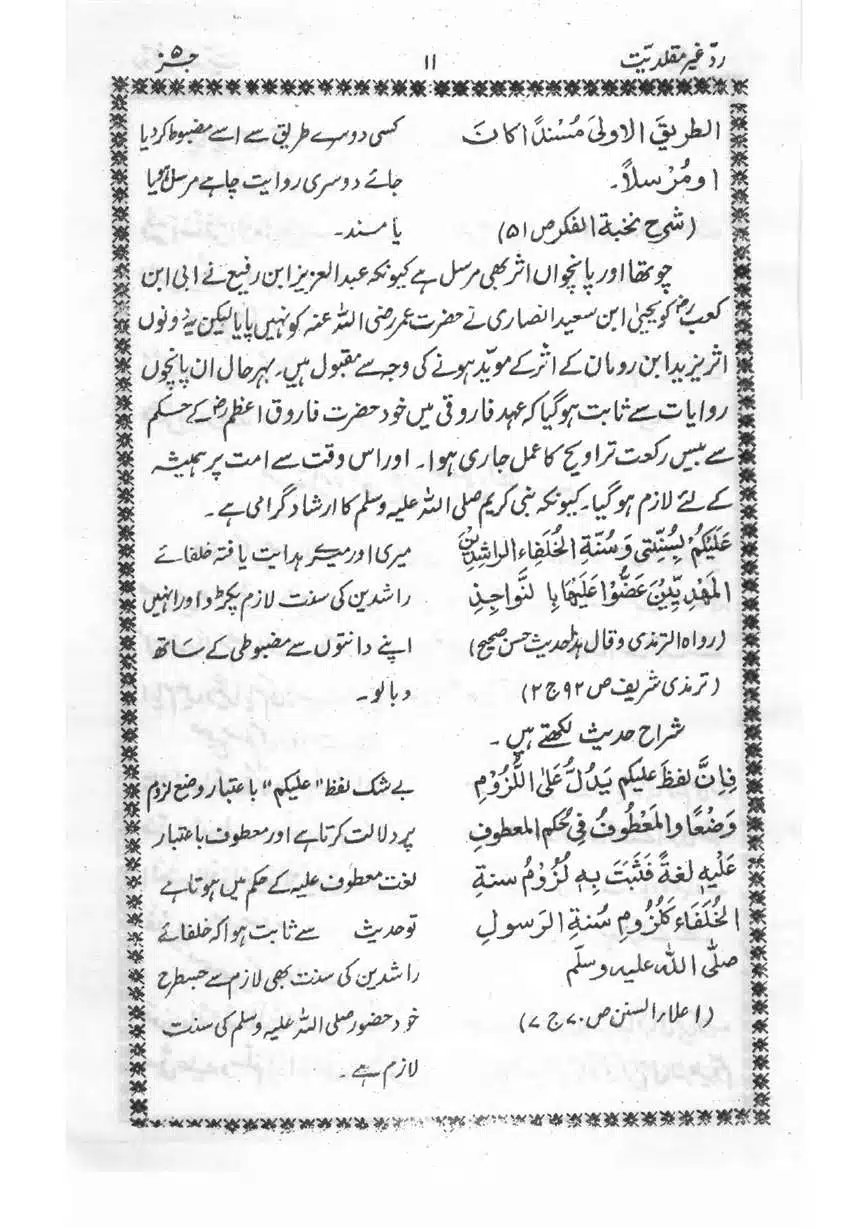 ردّ غیر مقلدیّت ۱۱ جز ۵
الطریق الاولیٰ مُسْنداً کانَ
اومُرْسلاً۔
(شرح نخبۃ الفکر ص ۵۱)
کسی دوسرے طریق سے اسے مضبوط کر دیا
جائے دوسری روایت چاہے مرسل ہو
یا مسند۔
چوتھا اور پانچواں اثر بھی مرسل ہے کیونکہ عبدالعزیز ابن رفیع نے ابی ابن
کعبؓ کو یحییٰ ابن سعید انصاری نے حضرت عمر رضی اللہ عنہ کو نہیں پایا لیکن یہ دونوں
اثر یزید ابن رومان کے اثر کے موید ہونے کی وجہ سے مقبول ہیں۔ بہرحال ان پانچوں
روایات سے ثابت ہو گیا کہ عہد فاروقی میں خود حضرت فاروق اعظمؓ کے حکم
سے بیس رکعت تراویح کا عمل جاری ہوا۔ اور اس وقت سے امت پر ہمیشہ
کے لئے لازم ہو گیا۔ کیونکہ نبی کریم صلی اللہ علیہ وسلم کا ارشاد گرامی ہے۔
عَلَیْکُمْ بِسُنَّتِی وَسُنَّۃِ الْخُلَفَاءِ الراشدِیْنَ
الْمَھْدِیِّیْنَ عَضُّوْا عَلَیْھَا بِا لنَّواجِذِ
(رواہ الترمذی وقال ہذا حدیث حسن صحیح)
(ترمذی شریف ص ۹۲ ج ۲)
میری اور میرے ہدایت یافتہ خلفائے
راشدین کی سنت لازم پکڑو اور انہیں
اپنے دانتوں سے مضبوطی کے ساتھ
دبا لو۔
شراح حدیث لکھتے ہیں۔
فَاِنَّ لفظَ علیکم یَدُلُّ عَلیَ اللُّزُوْمِ
وَضْعًا والمَعْطُوفُ فِی حُکْمِ المعطوفِ
عَلَیْہِ لغةً فَثَبَتَ بِہٖ لُزُوْمُ سنةِ
الخُلَفَاءِ کَلُزُومِ سُنةِ الرَسولِ
صلَّی اللہُ علیہ وسلّم
(اعلاء السنن ص ۷۰ ج ۷)
بے شک لفظ "علیکم" باعتبار وضع لزوم
پر دلالت کرتا ہے اور معطوف باعتبار
لغت معطوف علیہ کے حکم میں ہوتا ہے
تو حدیث سے ثابت ہوا کہ خلفائے
راشدین کی سنت بھی لازم ہے جسطرح
خود حضور صلی اللہ علیہ وسلم کی سنت
لازم ہے۔